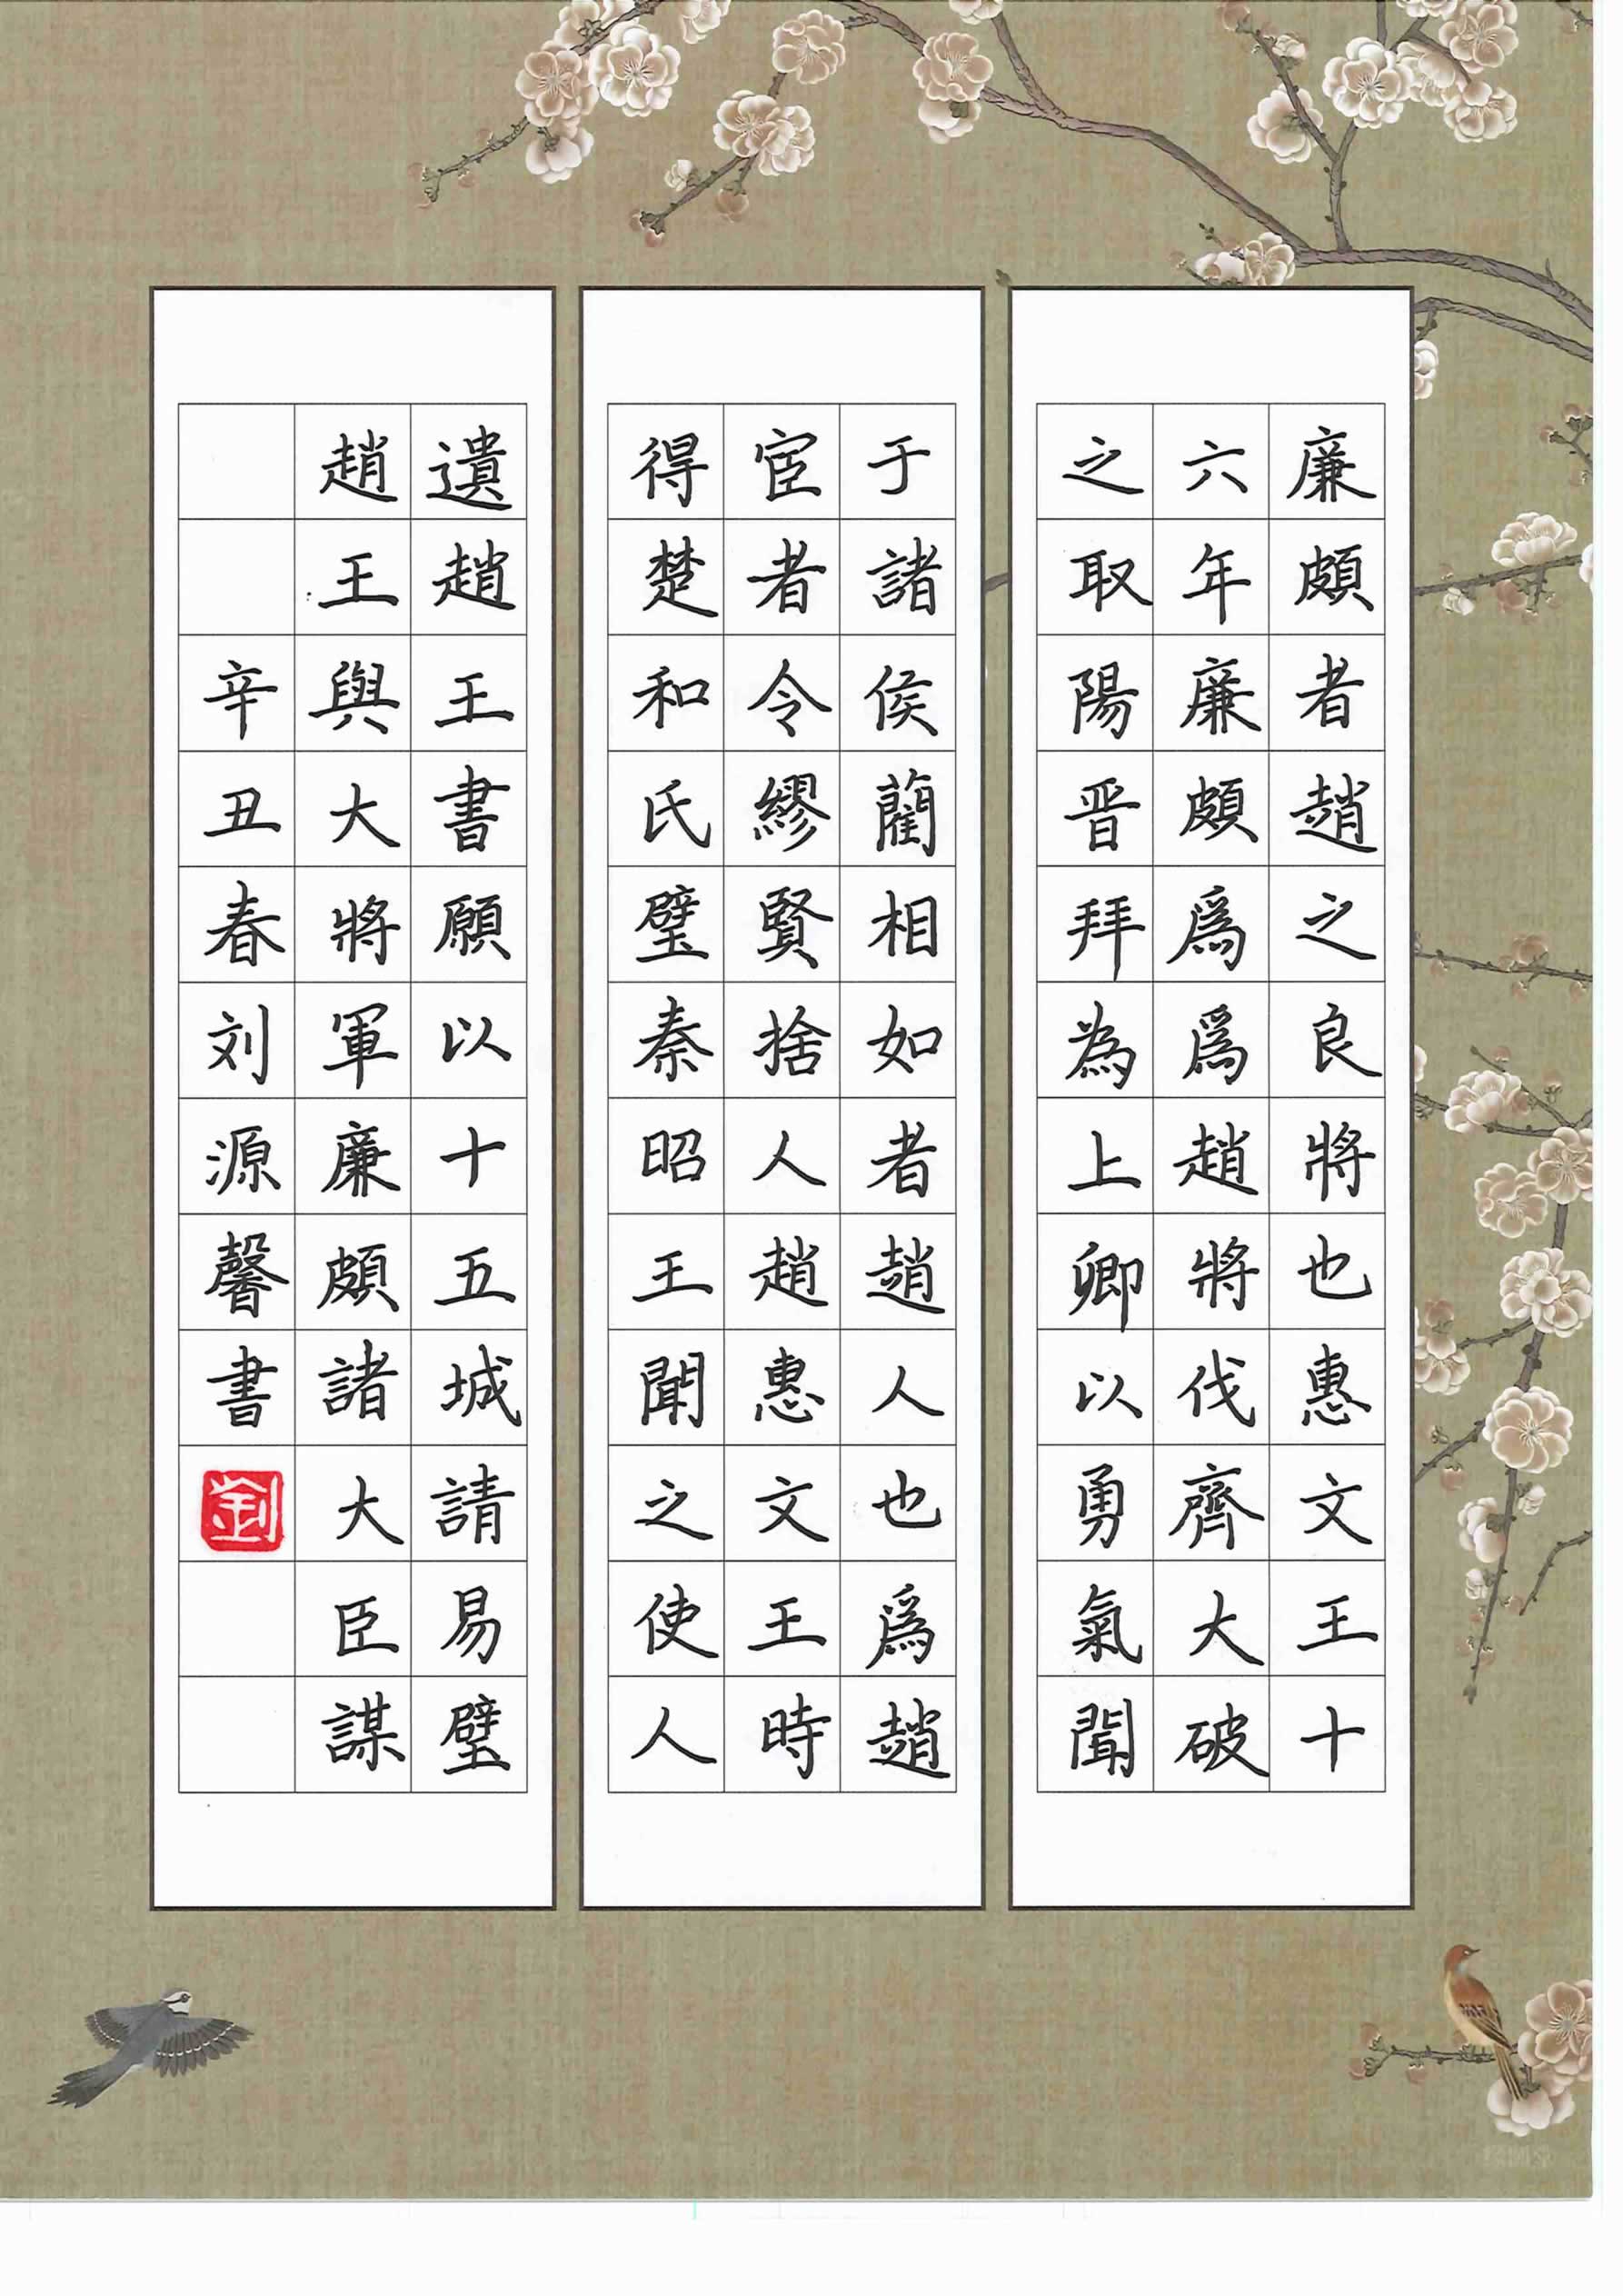 廉頗者趙之良將也惠文王十
六年廉頗爲爲趙將伐齊大破
之取陽晋拜為上卿以勇氣聞
于諸侯藺相如者趙人也爲趙
宦者令繆賢捨人趙惠文王時
得楚和氏璧秦昭王聞之使人
遺趙王書願以十五城請易璧
趙王與大將軍廉頗諸大臣謀
辛丑春刘源馨書
劉